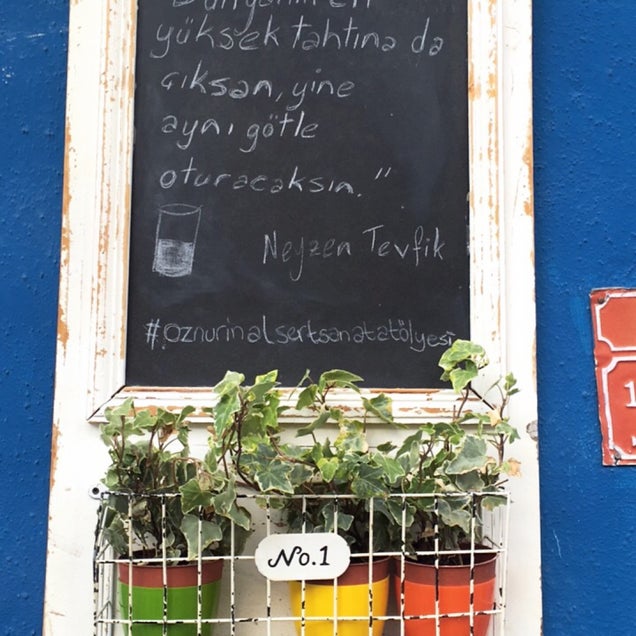 "Dünyanın en
yüksek tahtına da
çıksan, yine
aynı götle
oturacaksın."
Neyzen Tevfik
#oznurinalsertsanatatölyesi
No.1
1